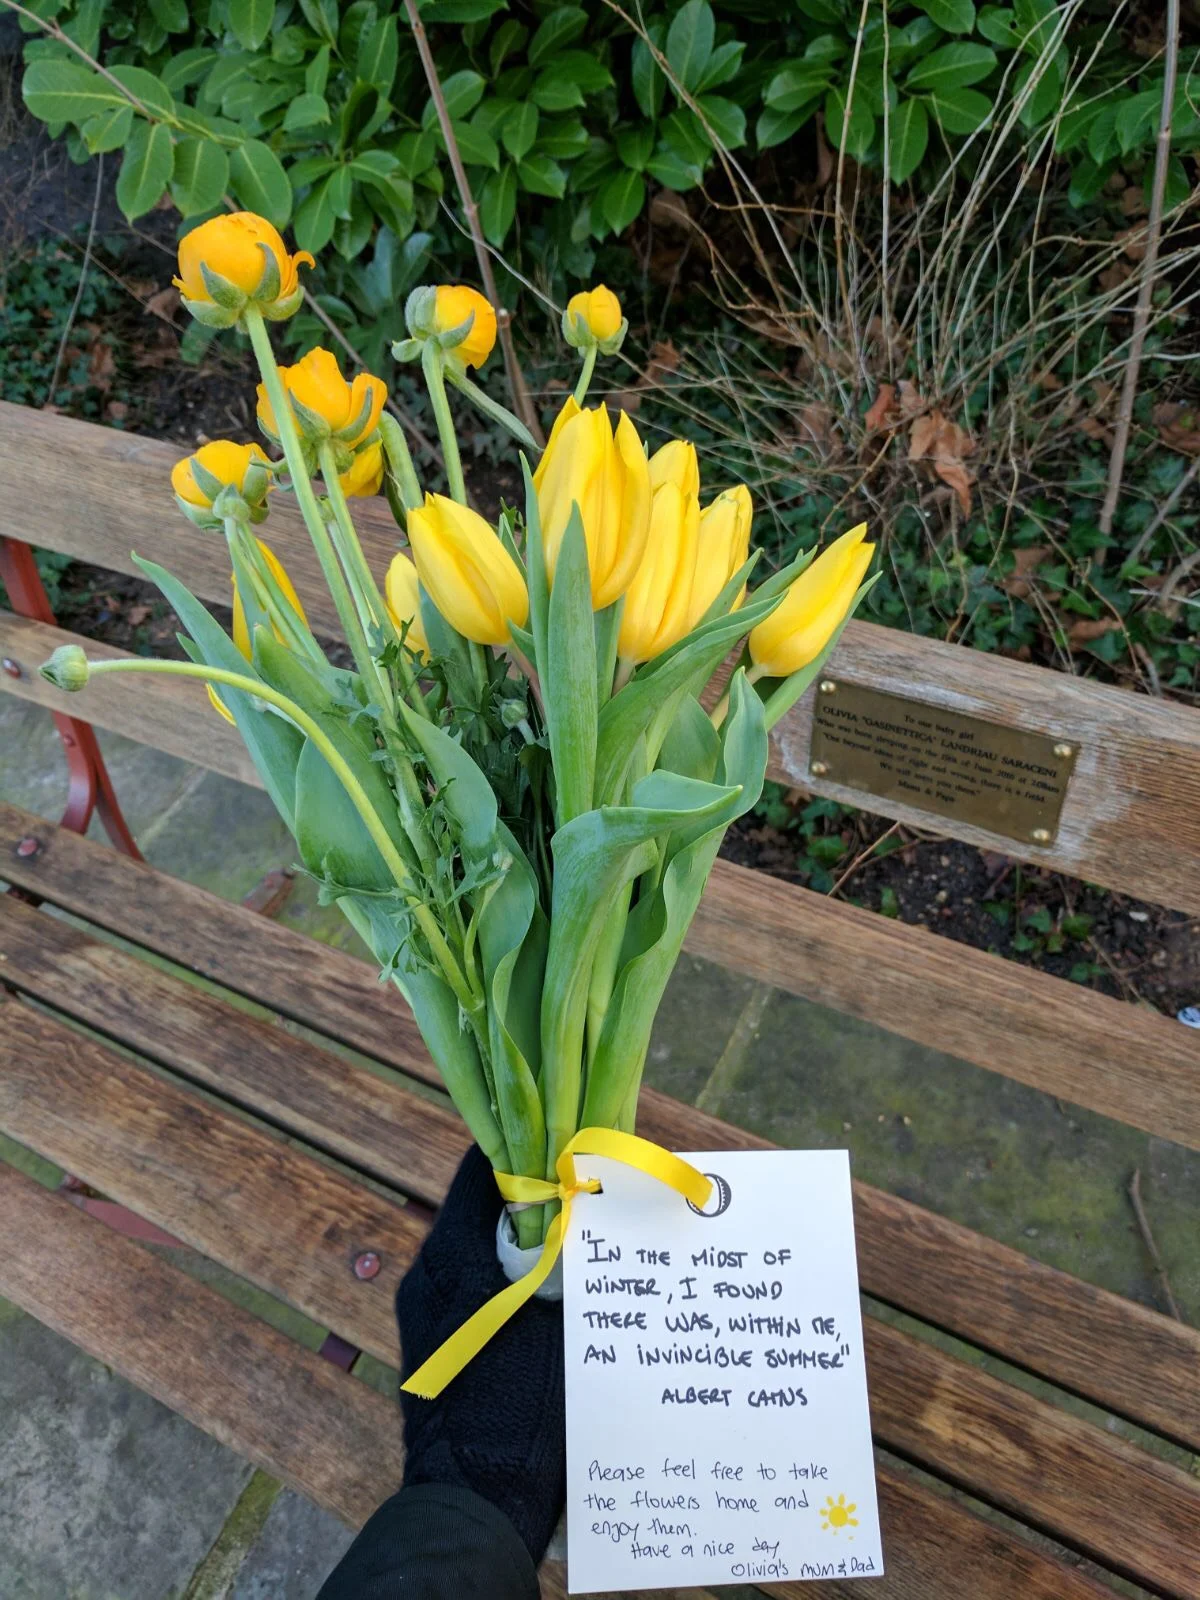 To our baby girl
OLIVIA "GASINETTICA" LANDRIAU SARACENI
Who was born sleeping on the 19th of June 2016 at 2.08am
"Out beyond ideas of right and wrong, there is a field.
We will meet you there."
Mama & Papa
"IN THE MIDST OF
WINTER, I FOUND
THERE WAS, WITHIN ME,
AN INVINCIBLE SUMMER"
ALBERT CAMUS
Please feel free to take
the flowers home and
enjoy them.
Have a nice day
Olivia's MUM & Dad